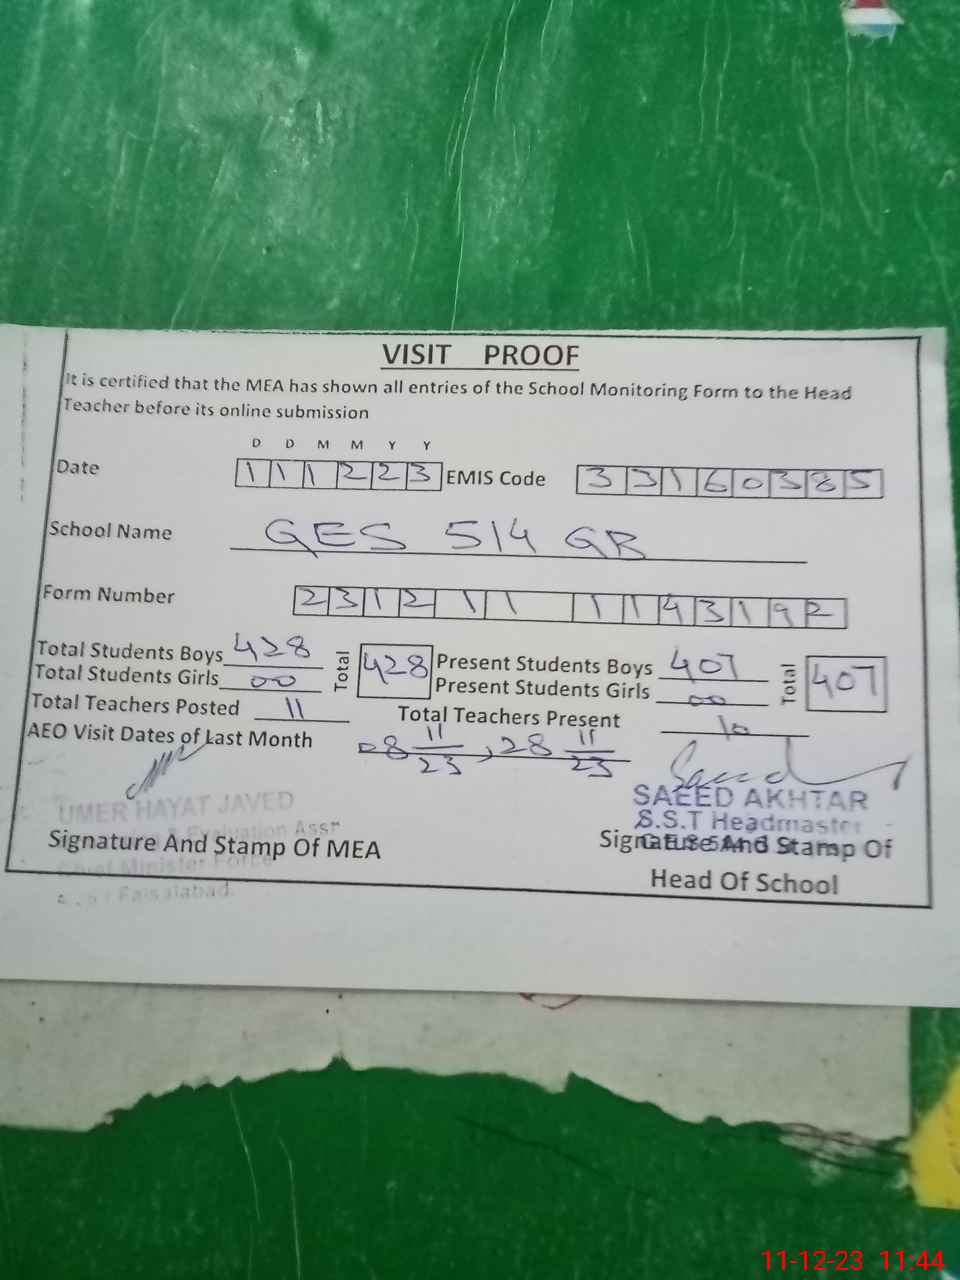 VISIT PROOF
It is certified that the MEA has shown all entries of the School Monitoring Form to the Head
Teacher before its online submission
D D M M Y Y
Date 111223 EMIS Code 33160385
School Name GES 514 GB
Form Number 2312 11 1143192
Total Students Boys 428 Total 428 Present Students Boys 407 Total 407
Total Students Girls 00 Present Students Girls 00
Total Teachers Posted 11 Total Teachers Present 10
AEO Visit Dates of Last Month 08 11/23, 28 11/23
Saeed
UMER HAYAT JAVED
SAEED AKHTAR
& Evaluation Asst
S.S.T Headmaster
Signature And Stamp Of MEA
Signature And Stamp Of
Chief Minister Force
Head Of School
Faisalabad.
11-12-23 11:44